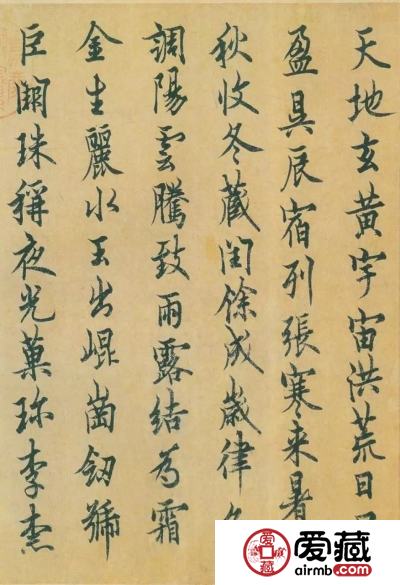 天地玄黃宇宙洪荒日
盈昃辰宿列張寒来暑
秋收冬藏閏餘成歲律
調陽雲騰致雨露結為霜
金生麗水玉出崐崗劒號
巨闕珠稱夜光菓珍李柰
爱藏
airmb.com